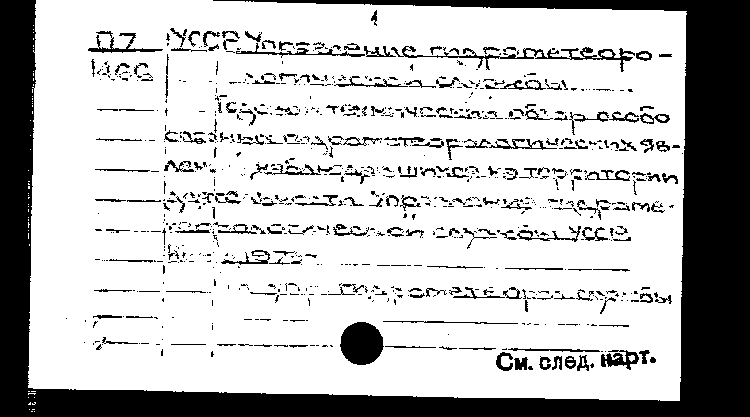 1
П7 УССР. Управление гидрометеоро-
1466 логической службы.
Годовой технический обзор особо
опасных гидрометеорологических яв-
лений, наблюдающихся на территории
деятельности Управления гидроме-
теорологической службы УССР.
Киев, 1973-
гидрометеорол. службы
См. след. карт.